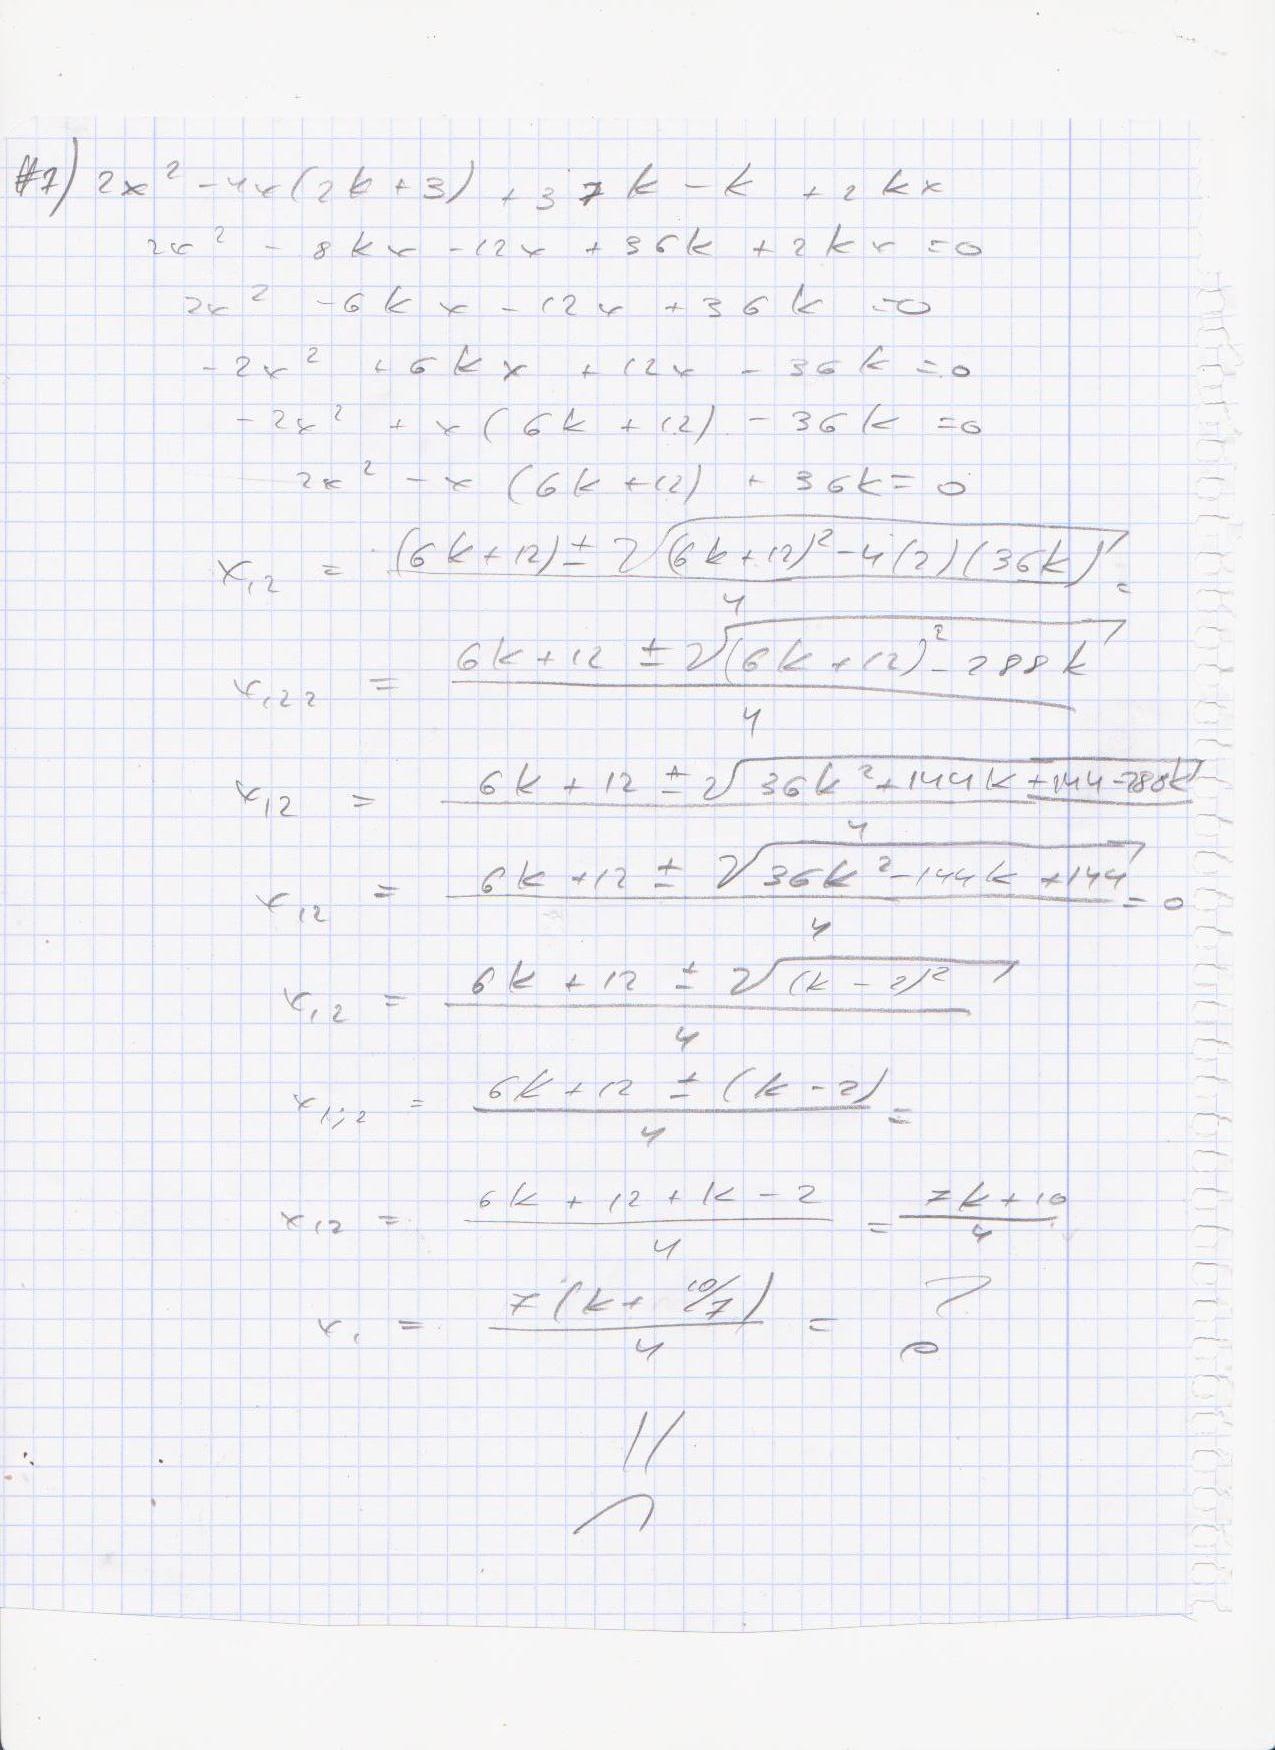 #7) 2x² - 4x(2k+3) + 37k - k + 2kx
2x² - 8kx - 12x + 36k + 2kx = 0
2x² - 6kx - 12x + 36k = 0
-2x² + 6kx + 12x - 36k = 0
-2x² + x(6k+12) - 36k = 0
2x² - x(6k+12) + 36k = 0
x₁₂ = (6k+12) ± ²√((6k+12)² - 4(2)(36k)) / 4 =
x₁₂₂ = 6k+12 ± ²√((6k+12)² - 288k) / 4
x₁₂ = 6k+12 ± ²√(36k² + 144k + 144 - 288k) / 4
x₁₂ = 6k+12 ± ²√(36k² - 144k + 144) / 4 = 0
x₁₂ = 6k+12 ± ²√((k-2)²) / 4
x₁;₂ = 6k+12 ± (k-2) / 4 =
x₁₂ = 6k+12+k-2 / 4 = 7k+10 / 4
x₁ = 7(k + 10/7) / 4 = ?